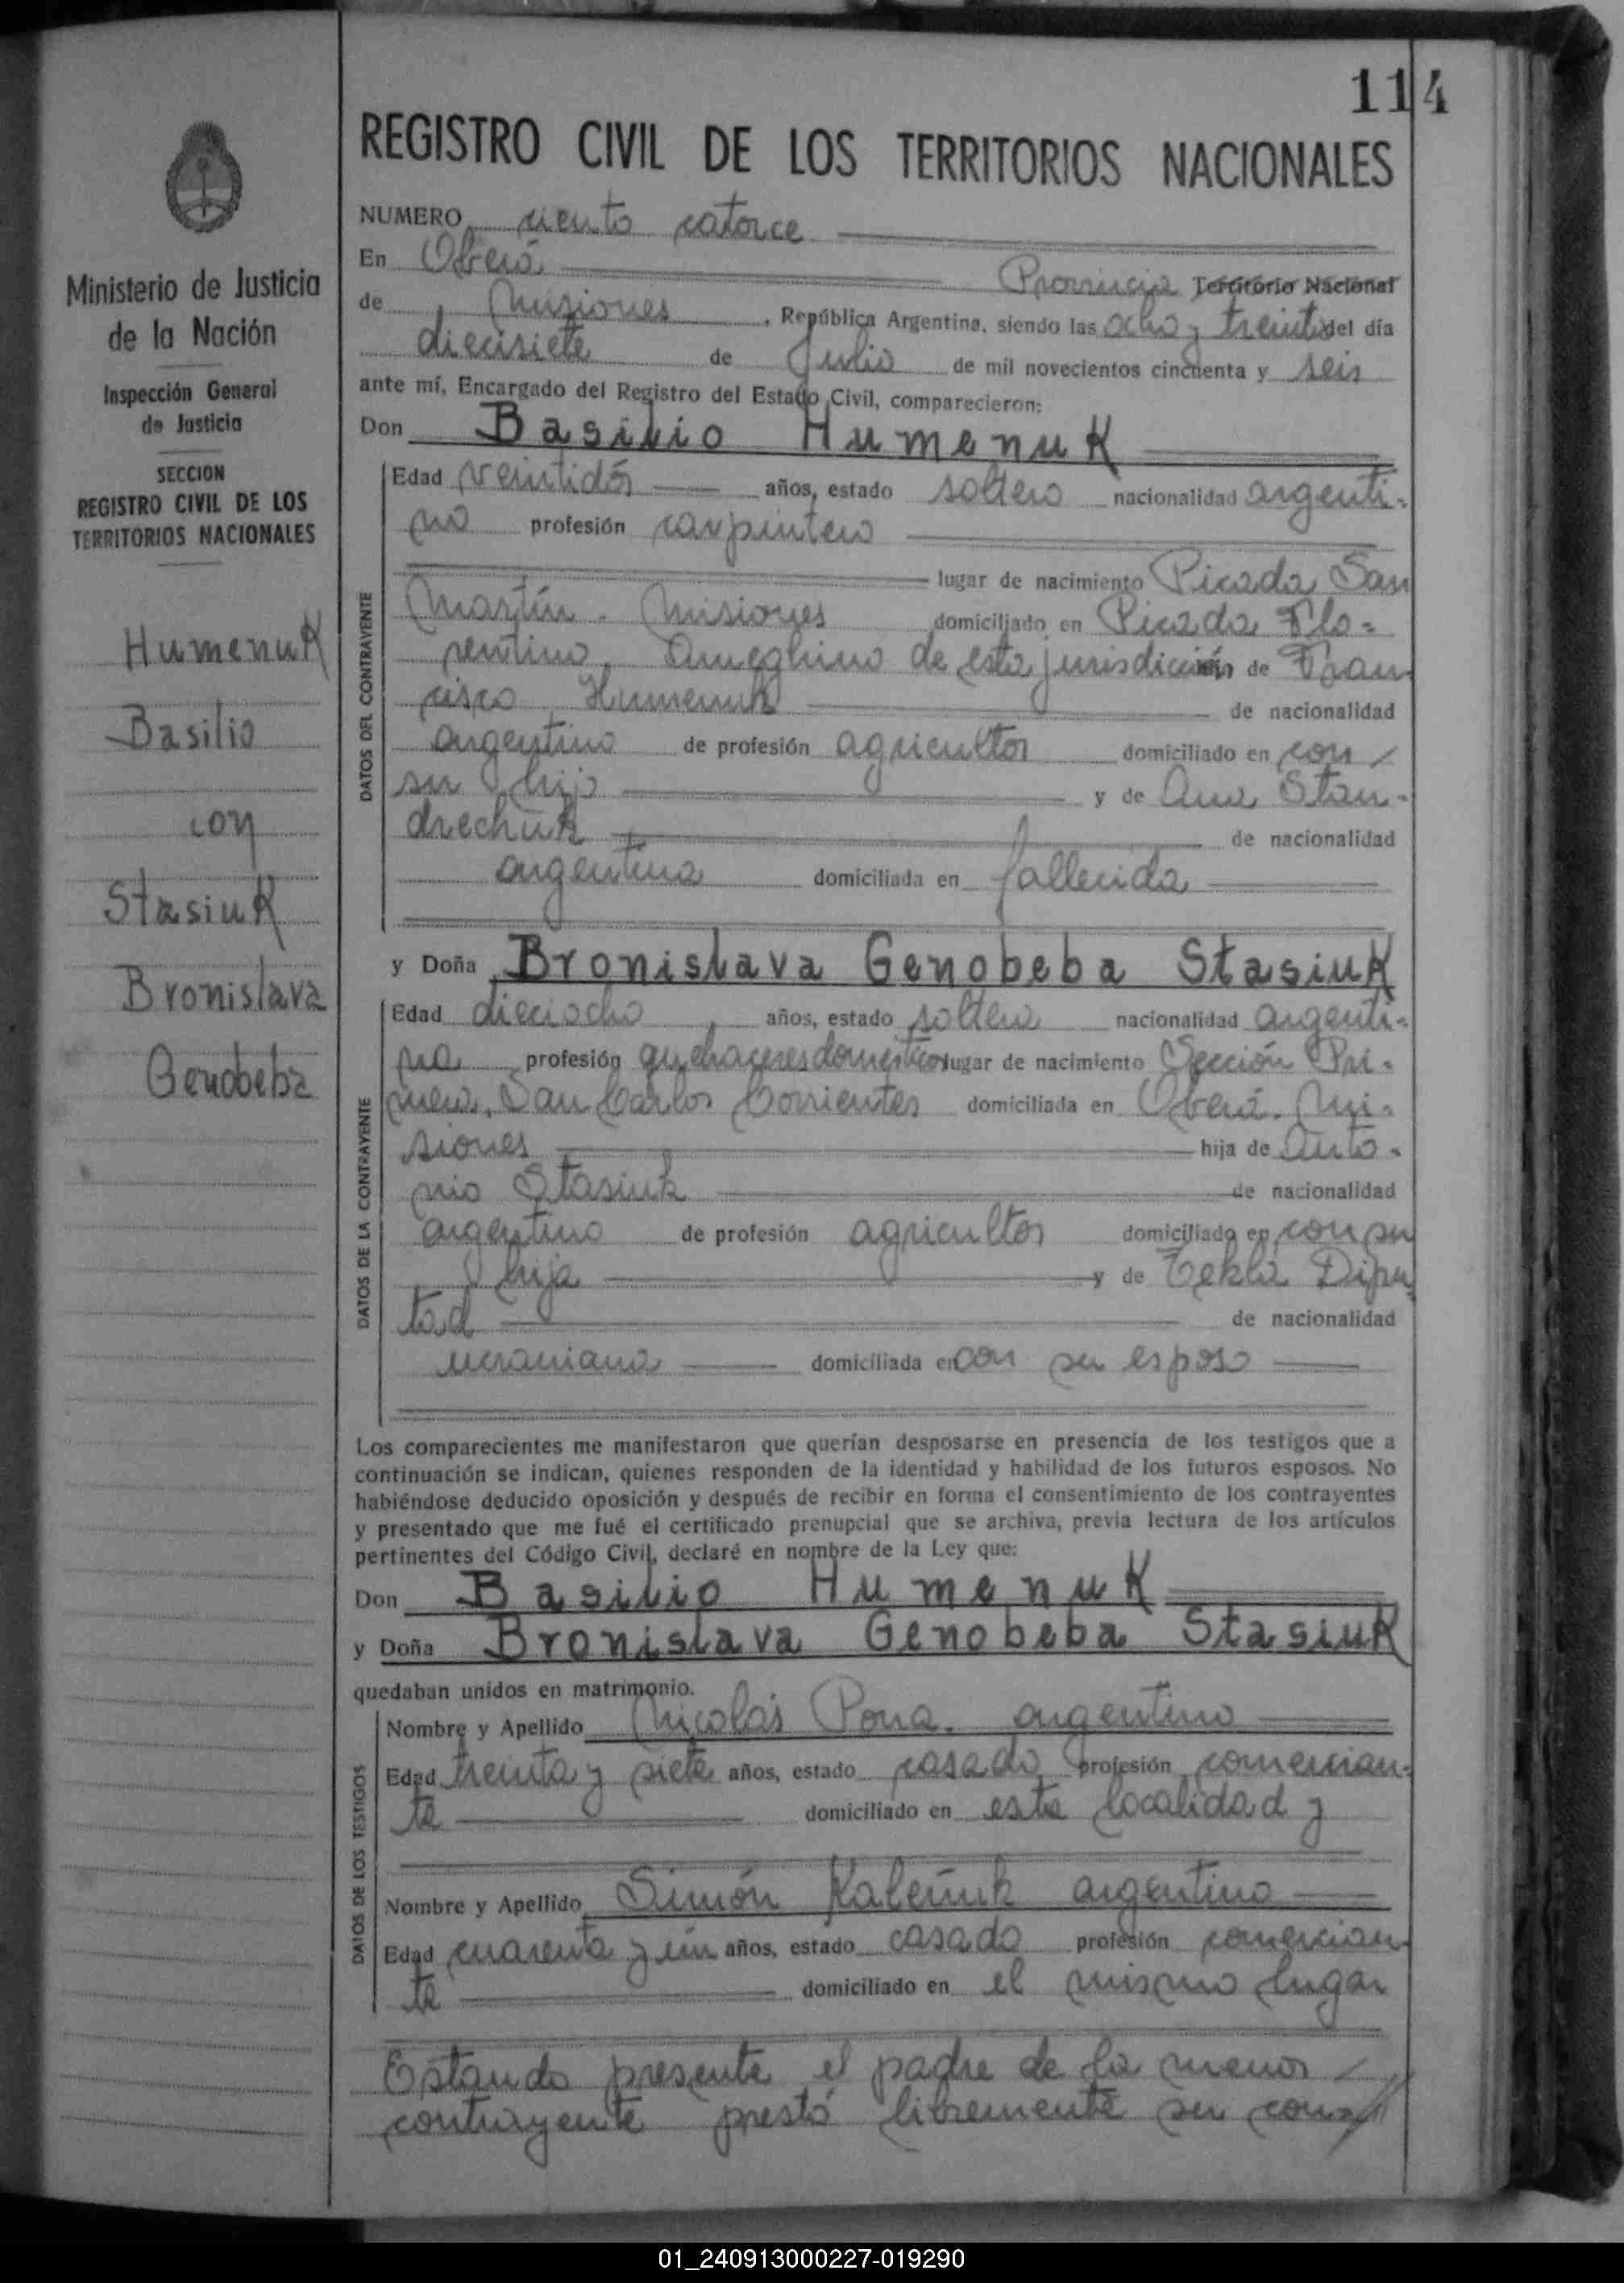 114
REGISTRO CIVIL DE LOS TERRITORIOS NACIONALES
Ministerio de Justicia
de la Nación
Inspección General
de Justicia
SECCION
REGISTRO CIVIL DE LOS
TERRITORIOS NACIONALES
Humenuk
Basilio
con
Stasiuk
Bronislava
Genobeba
NUMERO ciento catorce
En Oberá Provincia Territorio Nacional
de Misiones, República Argentina, siendo las ocho y treinta del día
diecisiete de Julio de mil novecientos cincuenta y seis
ante mí, Encargado del Registro del Estado Civil, comparecieron:
Don Basilio Humenuk
DATOS DEL CONTRAYENTE
Edad veintidós años, estado soltero nacionalidad argenti-
no profesión carpintero
lugar de nacimiento Picada San
Martín - Misiones domiciliado en Picada Flo-
rentino Ameghino de esta jurisdicción de Fran-
cisco Humenuk de nacionalidad
argentino de profesión agricultor domiciliado en con
su hijo y de Ana Stan-
drechuk de nacionalidad
argentina domiciliada en fallecida
y Doña Bronislava Genobeba Stasiuk
DATOS DE LA CONTRAYENTE
Edad dieciocho años, estado soltera nacionalidad argenti-
na profesión quehaceres domésticos lugar de nacimiento Sección Pri-
mera, San Carlos Corrientes domiciliada en Oberá. Mi-
siones hija de Anto-
nio Stasiuk de nacionalidad
argentino de profesión agricultor domiciliado en con su
hija y de Tekla Dipu-
tad de nacionalidad
ucraniana domiciliada en con su esposo
Los comparecientes me manifestaron que querían desposarse en presencia de los testigos que a
continuación se indican, quienes responden de la identidad y habilidad de los futuros esposos. No
habiéndose deducido oposición y después de recibir en forma el consentimiento de los contrayentes
y presentado que me fué el certificado prenupcial que se archiva, previa lectura de los artículos
pertinentes del Código Civil, declaré en nombre de la Ley que:
Don Basilio Humenuk
y Doña Bronislava Genobeba Stasiuk
quedaban unidos en matrimonio.
DATOS DE LOS TESTIGOS
Nombre y Apellido Nicolás Pona. argentino
Edad treinta y siete años, estado casado profesión comercian-
te domiciliado en esta localidad y
Nombre y Apellido Simón Kaleñuk argentino
Edad cuarenta y un años, estado casado profesión comercian-
te domiciliado en el mismo lugar
Estando presente el padre de la menor
contrayente prestó libremente su con-
01_240913000227-019290